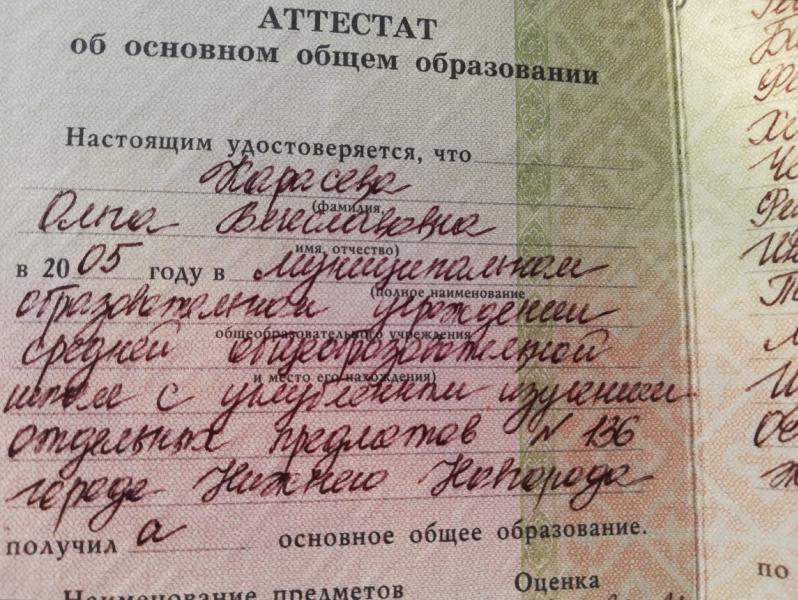 АТТЕСТАТ
об основном общем образовании
Настоящим удостоверяется, что
Карасева
(фамилия,
Ольга Вячеславовна
имя, отчество)
в 2005 году в муниципальном
(полное наименование
образовательном учреждении
общеобразовательного учреждения
средней общеобразовательной
и место его нахождения)
школе с углубленным изучением
отдельных предметов N 136
города Нижнего Новгорода
получила основное общее образование.
Наименование предметов Оценка
по